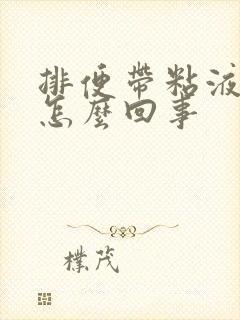 排便帶粘液
怎麼回事
樸茂